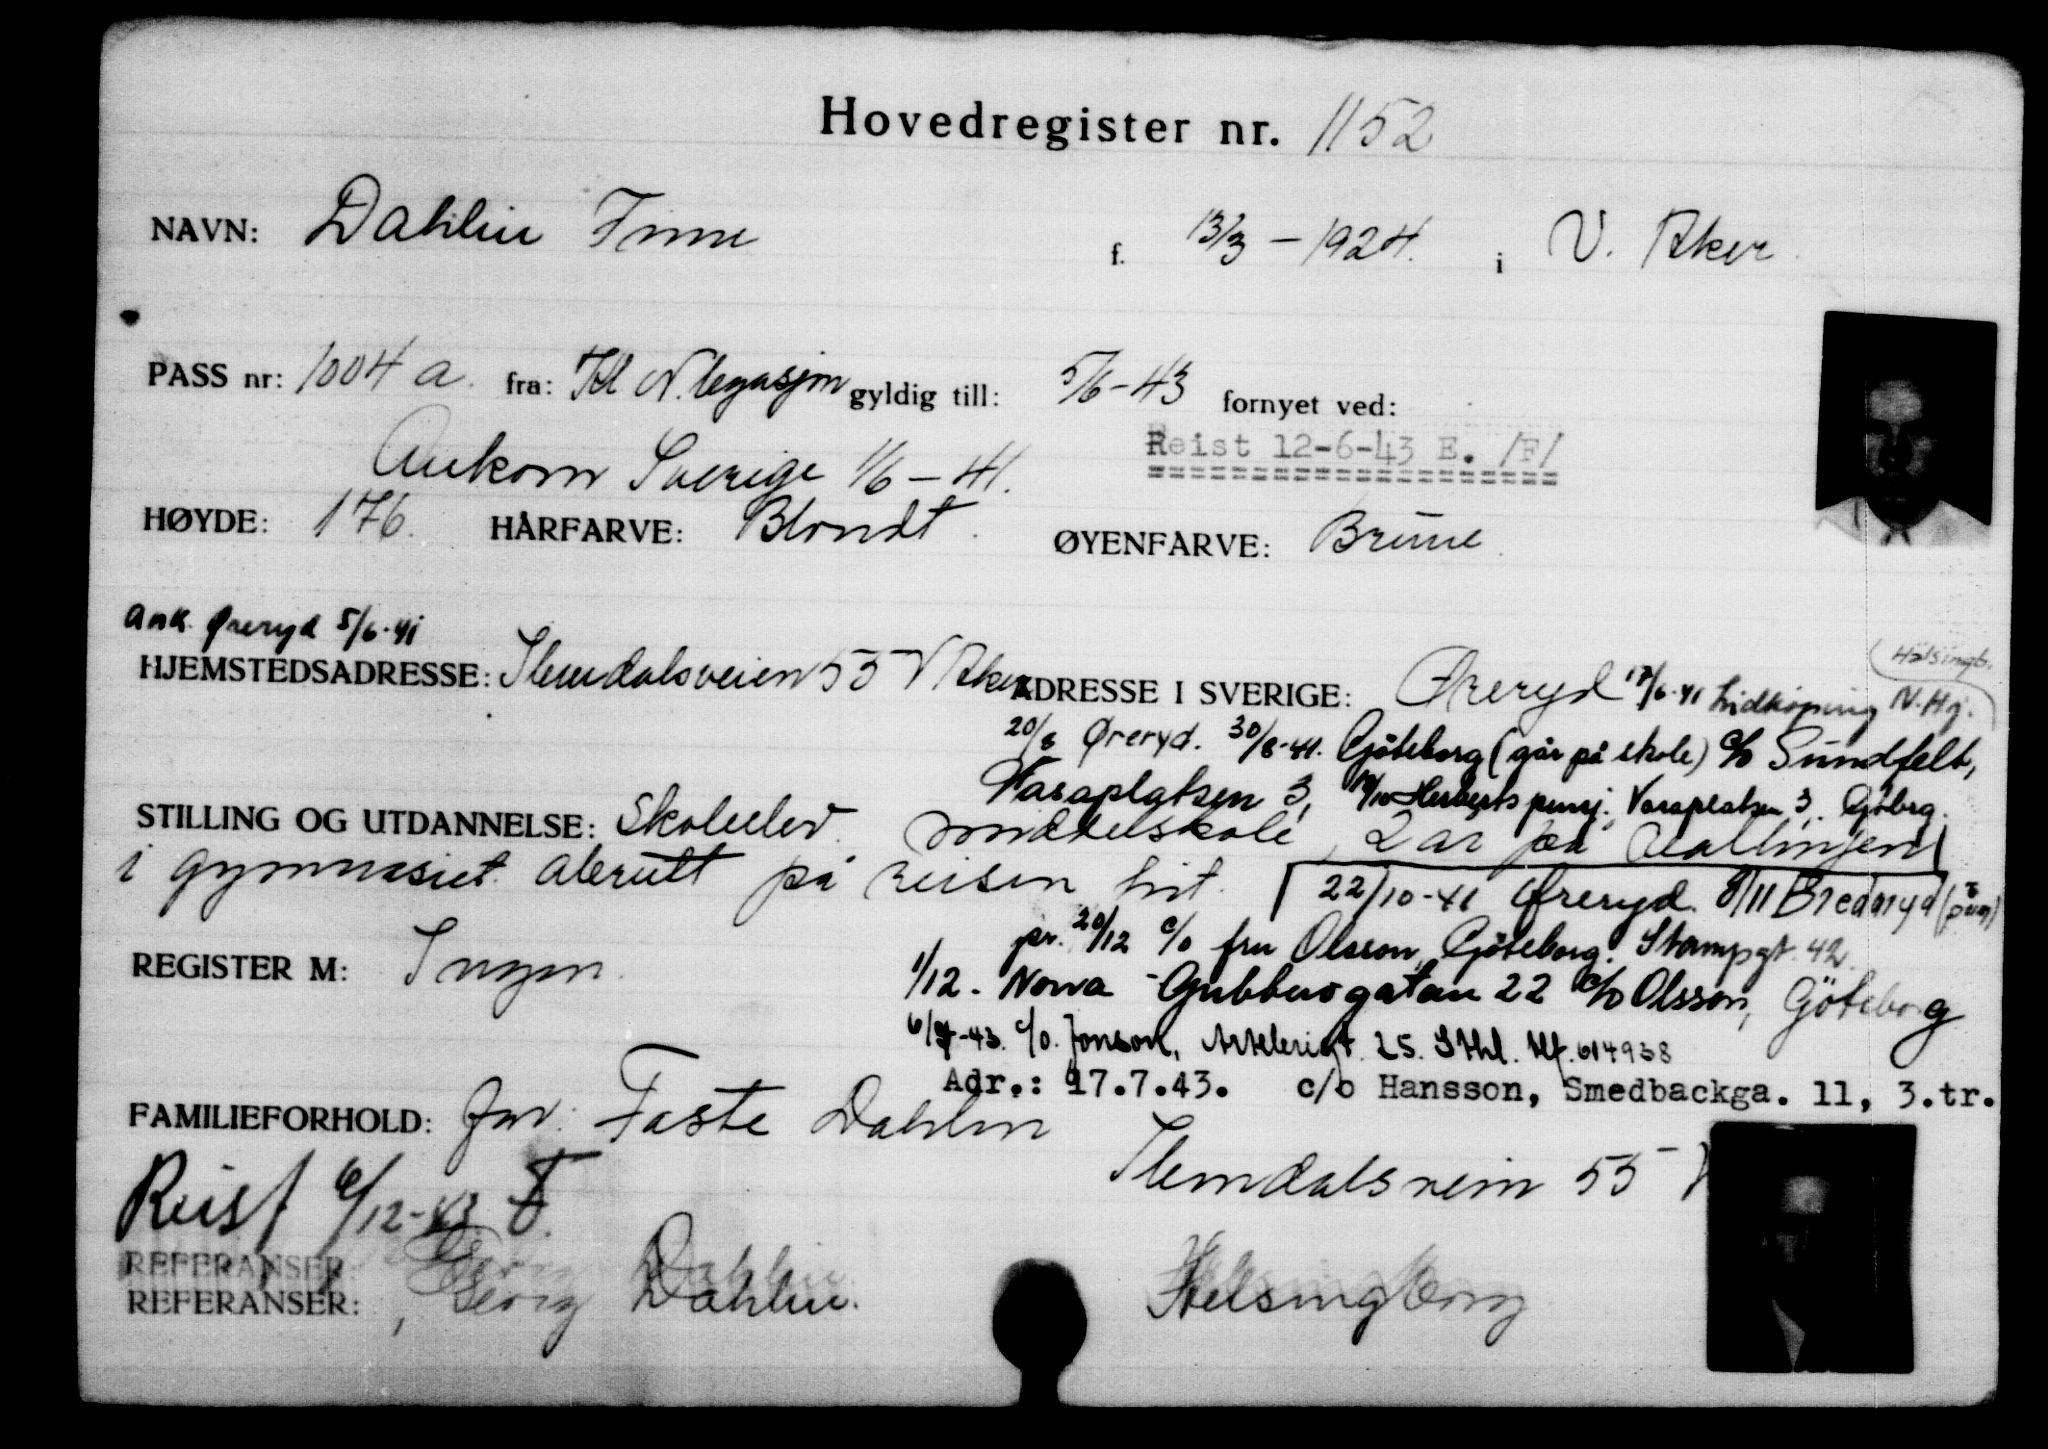 Hovedregister nr. 1152
NAVN: Dahlin Finn f. 13/3 - 1924. i V. Aker
PASS nr: 1004 a. fra: Kl N. legasjon gyldig till: 5/6-43 fornyet ved:
Reist 12-6-43 E. /F/
Ankom Sverige 1/6 - 41.
HØYDE: 176. HÅRFARVE: Blondt. ØYENFARVE: Brune
ank. Øreryd 5/6-41
HJEMSTEDSADRESSE: Slemdalsveien 55 V Aker
ADRESSE I SVERIGE: Øreryd 17/6-41 Lidköping N. Hj. (Hälsingb.
20/8 Øreryd. 30/8-41. Göteborg (går på skole) c/o Sundfelt,
Vasaplatsen 3, Herberts pensj., Vasaplatsen 3, Gøtbrg.
STILLING OG UTDANNELSE: Skoleelev. middelskole, 2 år på reallinjen
i gymnasiet. abrutt på reisen hit.
22/10-41 Øreryd. 8/11 Bredaryd
pr. 20/12 c/o fru Olsson, Göteborg. Stampgt. 42.
REGISTER M: Ingen.
1/12. Norra Gubberogatan 22 c/o Olsson, Göteborg
c/o. Jonson, Artelerigt. 25. Sthl. tlf. 614938
Adr.: 17.7.43. c/o Hansson, Smedbackga. 11, 3.tr.
FAMILIEFORHOLD: far: Faste Dahlin
Slemdalsveien 55 V
Reist 6/12-43 F.
REFERANSER:
REFERANSER: Georg Dahlin. Helsingborg